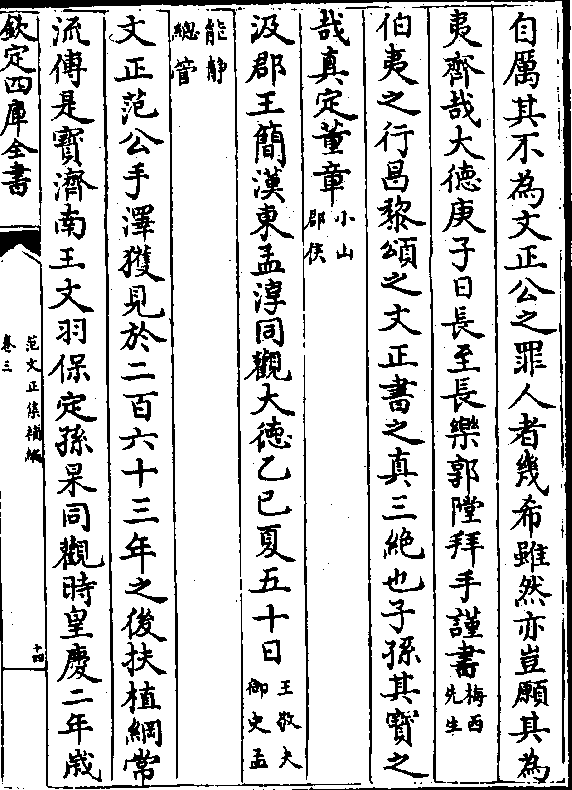 自厲其不為文正公之罪人者幾希雖然亦豈願其為
夷齊哉大德庚子日長至長樂郭隥拜手謹書梅西先生
伯夷之行昌黎頌之文正書之真三絶也子孫其寳之
哉真定董章小山郡侯
汲郡王簡漢東孟淳同觀大徳乙巳夏五十日王敬夫御史孟
能靜總管
文正范公手澤獲見於二百六十三年之後扶植綱常
流傳是寳濟南王文羽保定孫杲同觀時皇慶二年歲
欽定四庫全書
范文正集補編
卷三
十四